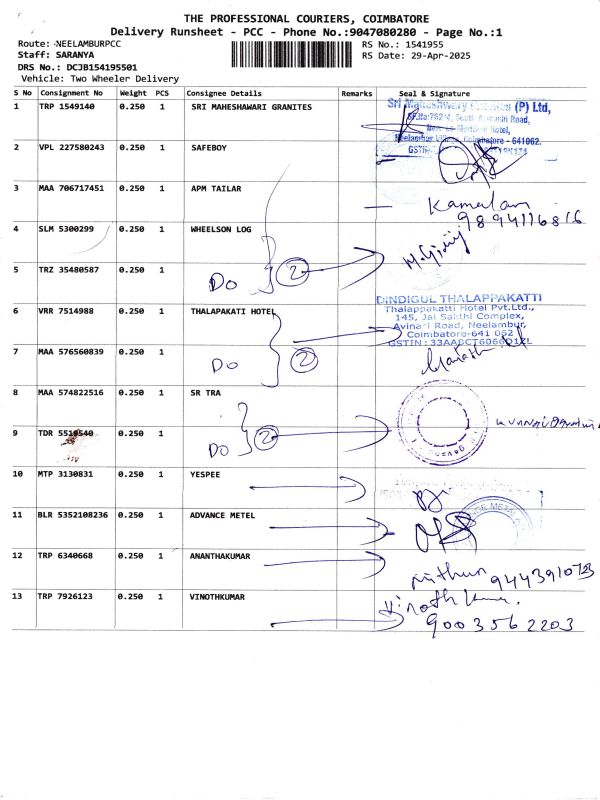 THE PROFESSIONAL COURIERS, COIMBATORE
Delivery Runsheet - PCC - Phone No.:9047080280 - Page No.:1
Route: NEELAMBURPCC
Staff: SARANYA
DRS No.: DCJB154195501
Vehicle: Two Wheeler Delivery
RS No.: 1541955
RS Date: 29-Apr-2025
S No Consignment No Weight PCS Consignee Details Remarks Seal & Signature
1 TRP 1549140 0.250 1 SRI MAHESHAWARI GRANITES
(P) Ltd,
Coimbatore - 641062.
2 VPL 227580243 0.250 1 SAFEBOY
3 MAA 706717451 0.250 1 APM TAILAR
Kamalam
9894116816
4 SLM 5300299 0.250 1 WHEELSON LOG
5 TRZ 35480587 0.250 1
Do 2
6 VRR 7514988 0.250 1 THALAPAKATI HOTEL
DINDIGUL THALAPPAKATTI
Thalappakatti Hotel Pvt.Ltd.,
145, Jai Sakthi Complex,
Avinari Road, Neelambur,
Coimbatore-641 062
7 MAA 576560839 0.250 1
Do 2
8 MAA 574822516 0.250 1 SR TRA
9 TDR 5519540 0.250 1
Do 2
10 MTP 3130831 0.250 1 YESPEE
11 BLR 5352108236 0.250 1 ADVANCE METEL
12 TRP 6340668 0.250 1 ANANTHAKUMAR
13 TRP 7926123 0.250 1 VINOTHKUMAR
Vinoth Kumar.
9003562203